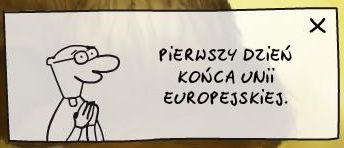 PIERWSZY DZIEŃ
KOŃCA UNII
EUROPEJSKIEJ.